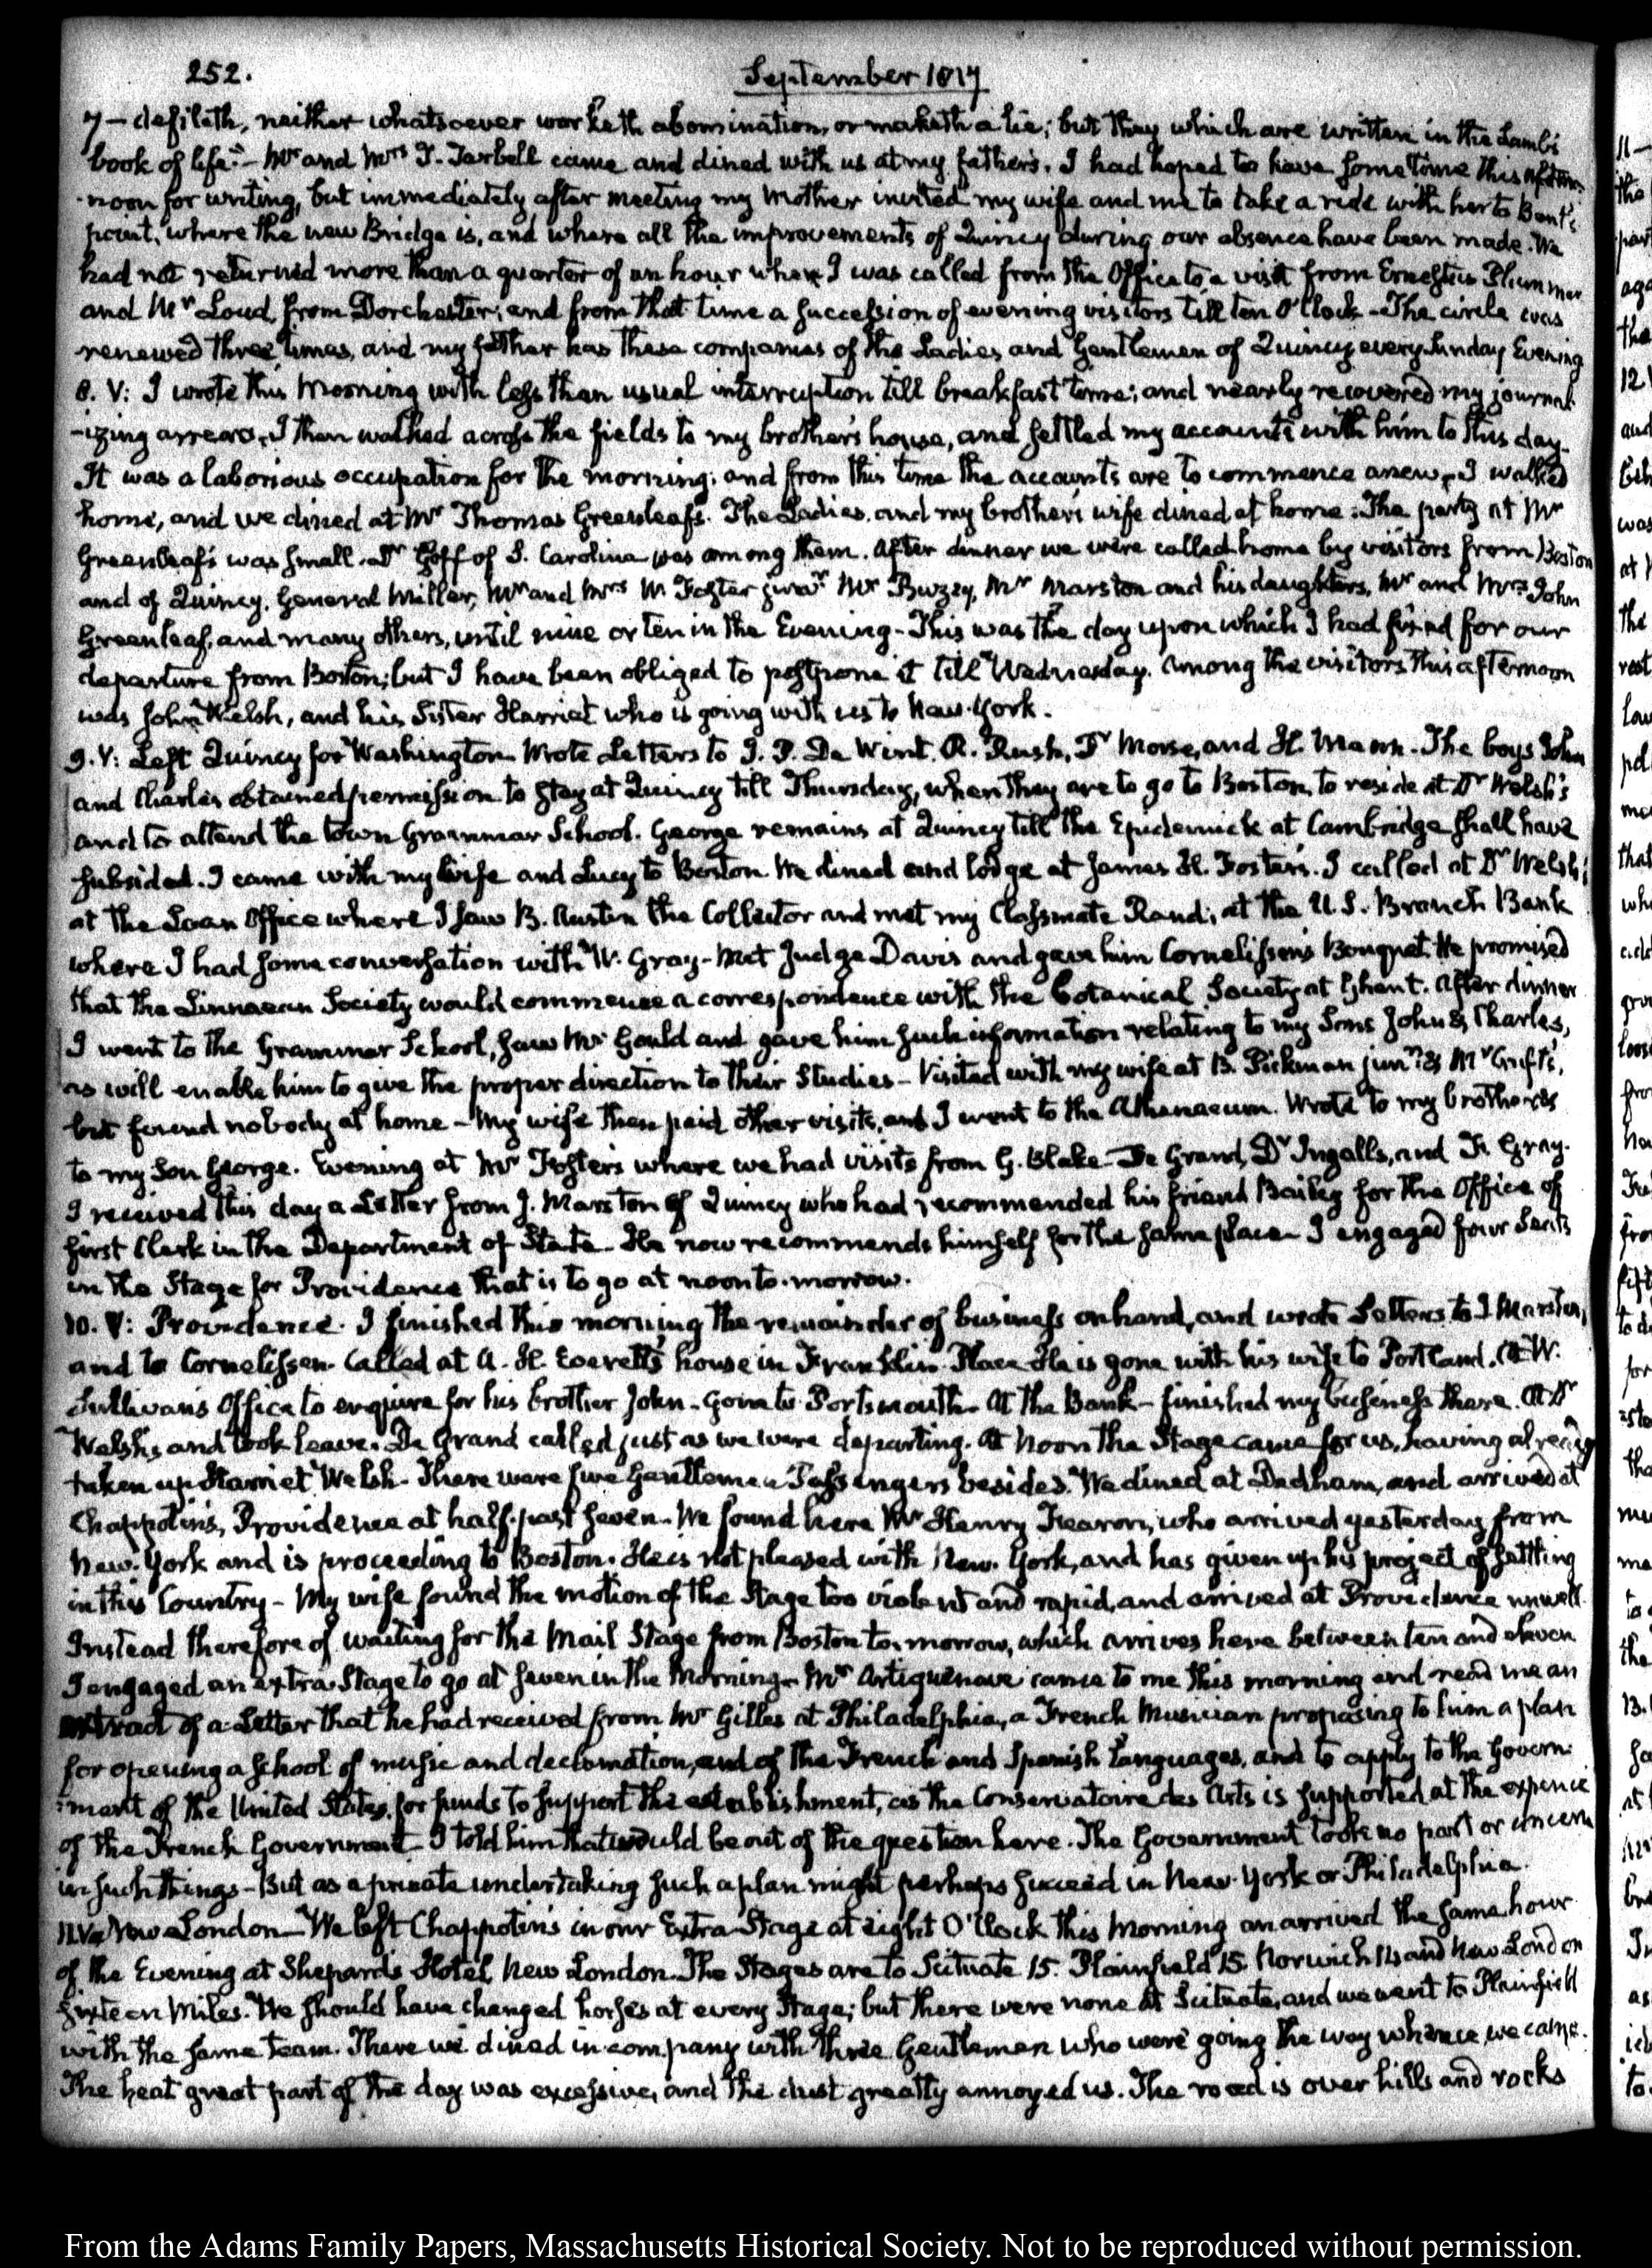 252.
September 1817
7 — defileth, neither whatsoever worketh abomination, or maketh a lie; but they which are written in the Lamb's
book of life."— Mr and Mrs T. Tarbell came and dined with us at my father's. I had hoped to have some time this after-
-noon for writing, but immediately after meeting my Mother invited my wife and me to take a ride with her to Bent's
point, where the new Bridge is, and where all the improvements of Quincy during our absence have been made. We
had not returned more than a quarter of an hour when I was called from the Office to a visit from Ernestus Plummer
and Mr Loud, from Dorchester; and from that time a succession of evening visitors till ten O'Clock - The circle was
renewed three times, and my father has these companies of the Ladies and Gentlemen of Quincy every Sunday Evening
8. V: I wrote this Morning with less than usual interruption till breakfast time; and nearly recovered my journal-
-izing arrears. I then walked across the fields to my brother's house, and settled my accounts with him to this day.
It was a laborious occupation for the morning; and from this time the accounts are to commence anew. I walked
home, and we dined at Mr Thomas Greenleaf's. The Ladies, and my brother's wife dined at home. The party at Mr
Greenleaf's was small. Dr Goff of S. Carolina was among them. After dinner we were called home by visitors from Boston
and of Quincy. General Miller, Mr and Mrs W Foster junr. Mr Bussey, Mr Marston and his daughters, Mr and Mrs John
Greenleaf, and many others, until nine or ten in the Evening - This was the day upon which I had fixed for our
departure from Boston; but I have been obliged to postpone it till Wednesday. Among the visitors this afternoon
was John Welsh, and his Sister Harriet who is going with us to New-York.
9. V: Left Quincy for Washington. Wrote Letters to J. P. De Wint. R. Rush, Dr Morse, and H. Mann - The boys John
and Charles obtained permission to stay at Quincy till Thursday, when they are to go to Boston, to reside at Dr Welsh's
and to attend the town Grammar School. George remains at Quincy till the Epidemick at Cambridge shall have
subsided. I came with my wife and Lucy to Boston. We dined and lodge at James H. Foster's. I called at Dr Welsh's;
at the Loan Office where I saw B. Austin the Collector and met my Classmate Rand; at the U.S. Branch Bank
where I had some conversation with W. Gray - Met Judge Davis and gave him Cornelissen's Bouquet. He promised
that the Linnaean Society would commence a correspondence with the Botanical Society at Ghent. After dinner
I went to the Grammar School, saw Mr Gould and gave him such information relating to my Sons John & Charles,
as will enable him to give the proper direction to their Studies - Visited with my wife at B. Pickman junr's & Mr Crufts,
but found nobody at home - My wife then paid other visits, and I went to the Athenaeum. Wrote to my brother &
to my Son George. Evening at Mr Foster's where we had visits from G. Blake - De Grand, Dr Ingalls, and F. Gray.
I received this day a Letter from J. Marston of Quincy who had recommended his friend Bailey for the Office of
first Clerk in the Department of State - He now recommends himself for the same place - I engaged four Seats
in the Stage for Providence that is to go at noon to-morrow.
10. V: Providence. I finished this morning the remainder of business on hand, and wrote Letters to J. Marston,
and to Cornelissen. Called at A. H. Everett's house in Franklin Place. He is gone with his wife to Portland. At W.
Sullivan's Office to enquire for his brother John - Gone to Portsmouth - At the Bank - finished my business there. At Dr
Welsh's, and took leave. De Grand called just as we were departing. At Noon the Stage came for us, having already
taken up Harriet Welsh. There were five Gentlemen Passengers besides. We dined at Dedham, and arrived at
Chappotin's, Providence at half-past seven - We found here Mr Henry Fearon, who arrived yesterday from
New-York and is proceeding to Boston. He is not pleased with New-York, and has given up his project of settling
in this Country - My wife found the motion of the Stage too violent and rapid, and arrived at Providence unwell.
Instead therefore of waiting for the Mail Stage from Boston to-morrow, which arrives here between ten and eleven
I engaged an extra-Stage to go at seven in the Morning - Mr Artiguenave came to me this morning and read me an
extract of a Letter that he had received from Mr Gilles at Philadelphia, a French Musician proposing to him a plan
for opening a school of music and declamation, and of the French and Spanish Languages, and to apply to the Govern-
-ment of the United States, for funds to support the establishment, as the Conservatoire des Arts is supported at the expence
of the French Government - I told him that would be out of the question here. The Government took no part or concern
in such things - But as a private undertaking such a plan might perhaps succeed in New-York or Philadelphia.
11. V: New London - We left Chappotin's in our Extra-Stage at eight O'Clock this Morning an arrived the same hour
of the Evening at Shepard's Hotel New London. The Stages are to Scituate 15. Plainfield 15. Norwich 14 and New London
sixteen Miles. We should have changed horses at every Stage; but there were none at Scituate, and we went to Plainfield
with the same team. There we dined in company with three Gentlemen who were going the way whence we came.
The heat great part of the day was excessive, and the dust greatly annoyed us. The road is over hills and rocks
From the Adams Family Papers, Massachusetts Historical Society. Not to be reproduced without permission.